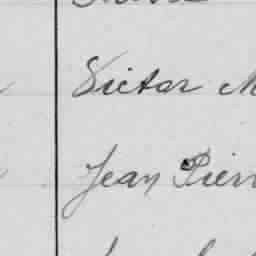 Victor M
Jean Pierr